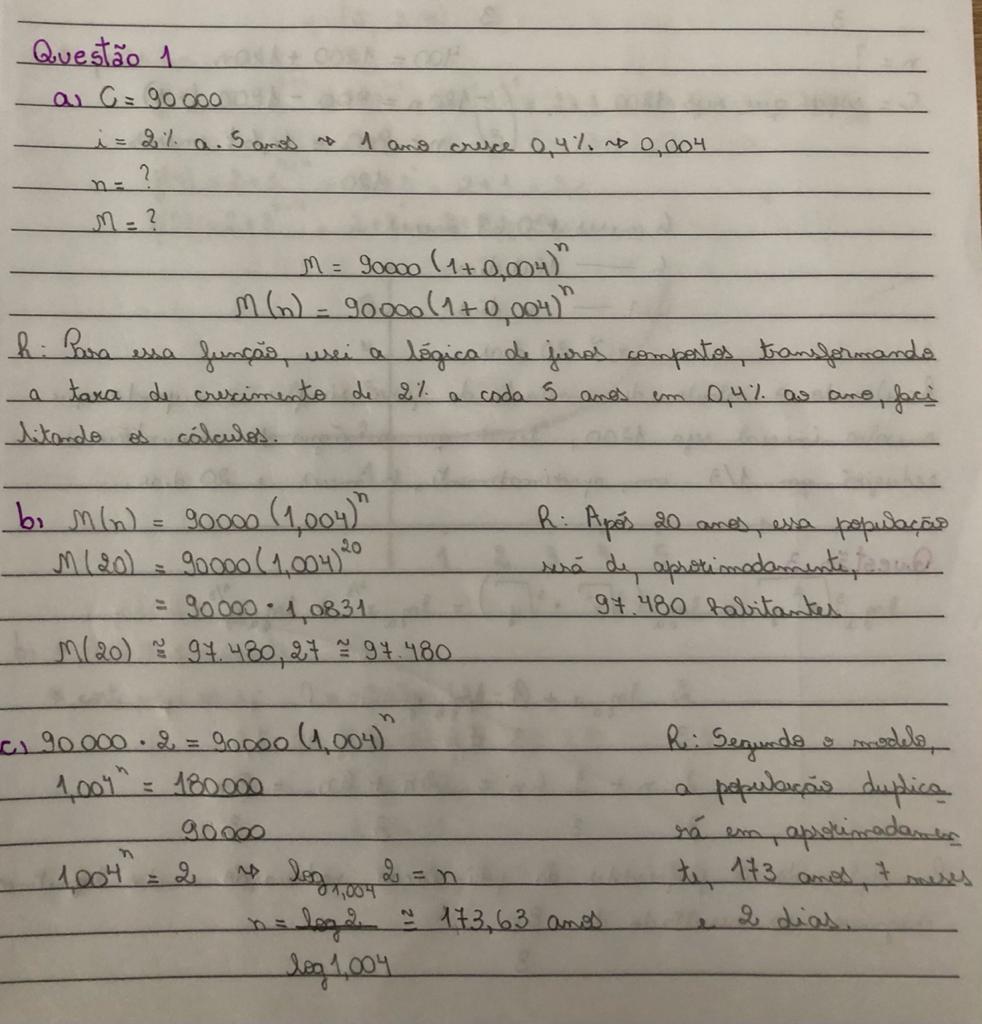 Questão 1
a) C = 90000
i = 2% a. 5 anos ⇝ 1 ano cresce 0,4% ⇝ 0,004
n = ?
M = ?
M = 90000 (1+0,004)ⁿ
M(n) = 90000(1+0,004)ⁿ
R: Para essa função, usei a lógica de juros compostos, transformando
a taxa de crescimento de 2% a cada 5 anos em 0,4% ao ano, faci
litando os cálculos.
b) M(n) = 90000(1,004)ⁿ
M(20) = 90000(1,004)²⁰
= 90000 · 1,0831
M(20) ≅ 97.480,27 ≅ 97.480
R: Após 20 anos, essa população
será de, aproximadamente,
97.480 habitantes
c) 90000 · 2 = 90000(1,004)ⁿ
1,004ⁿ = 180000
90000
1,004ⁿ = 2 ⇝ log₁,₀₀₄ 2 = n
n = log 2 ≅ 173,63 anos
log 1,004
R: Segundo o modelo,
a população duplica
rá em, aproximadamen
te, 173 anos, 7 meses
e 2 dias.